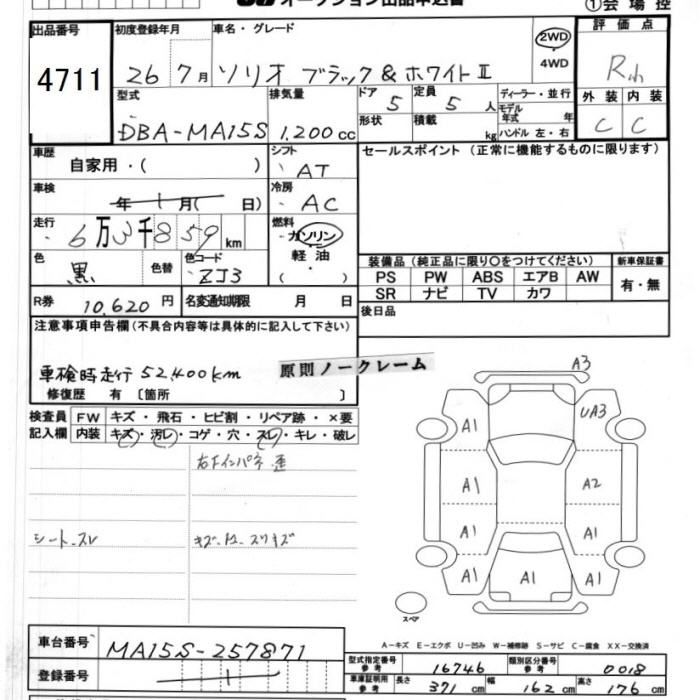 オークション出品申込書
①会場控
出品番号 4711
初度登録年月 26 7月
車名・グレード ソリオ ブラック&ホワイトⅡ
2WD
4WD
評価点
外装 内装
C C
型式 DBA-MA15S
排気量 1,200 cc
ドア 5
定員 5 人
形状
積載 kg
ディーラー・並行
モデル年式 年
ハンドル 左・右
車歴 自家用・( )
シフト AT
セールスポイント(正常に機能するものに限ります)
車検 年 月( 日)
冷房 AC
走行 6万3千859 km
燃料 ガソリン
軽油
・
( )
色 黒 色替
色コード ZJ3
装備品(純正品に限り○をつけてください)
新車保証書
PS PW ABS エアB AW
SR ナビ TV カワ
有・無
R券 10,620円
名変通知期限 月 日
後日品
注意事項申告欄(不具合内容等は具体的に記入して下さい)
車検時走行 52,400km
原則ノークレーム
修復歴 有〔箇所 〕
検査員 記入欄
FW キズ・飛石・ヒビ割・リペア跡・×要
内装 キズ・汚レ・コゲ・穴・スレ・キレ・破レ
シート、スレ
A3
A1
UA3
A1
A2
A1
A1
A1
A1
A1
スペア
A-キズ E-エクボ U-凹み W-補修跡 S-サビ C-腐食 XX-交換済
車台番号 MA15S-257871
登録番号
型式指定番号 参考 16746
類別区分番号 参考 0018
車庫証明用 参考 長さ 371 cm 幅 162 cm 高さ 176 cm